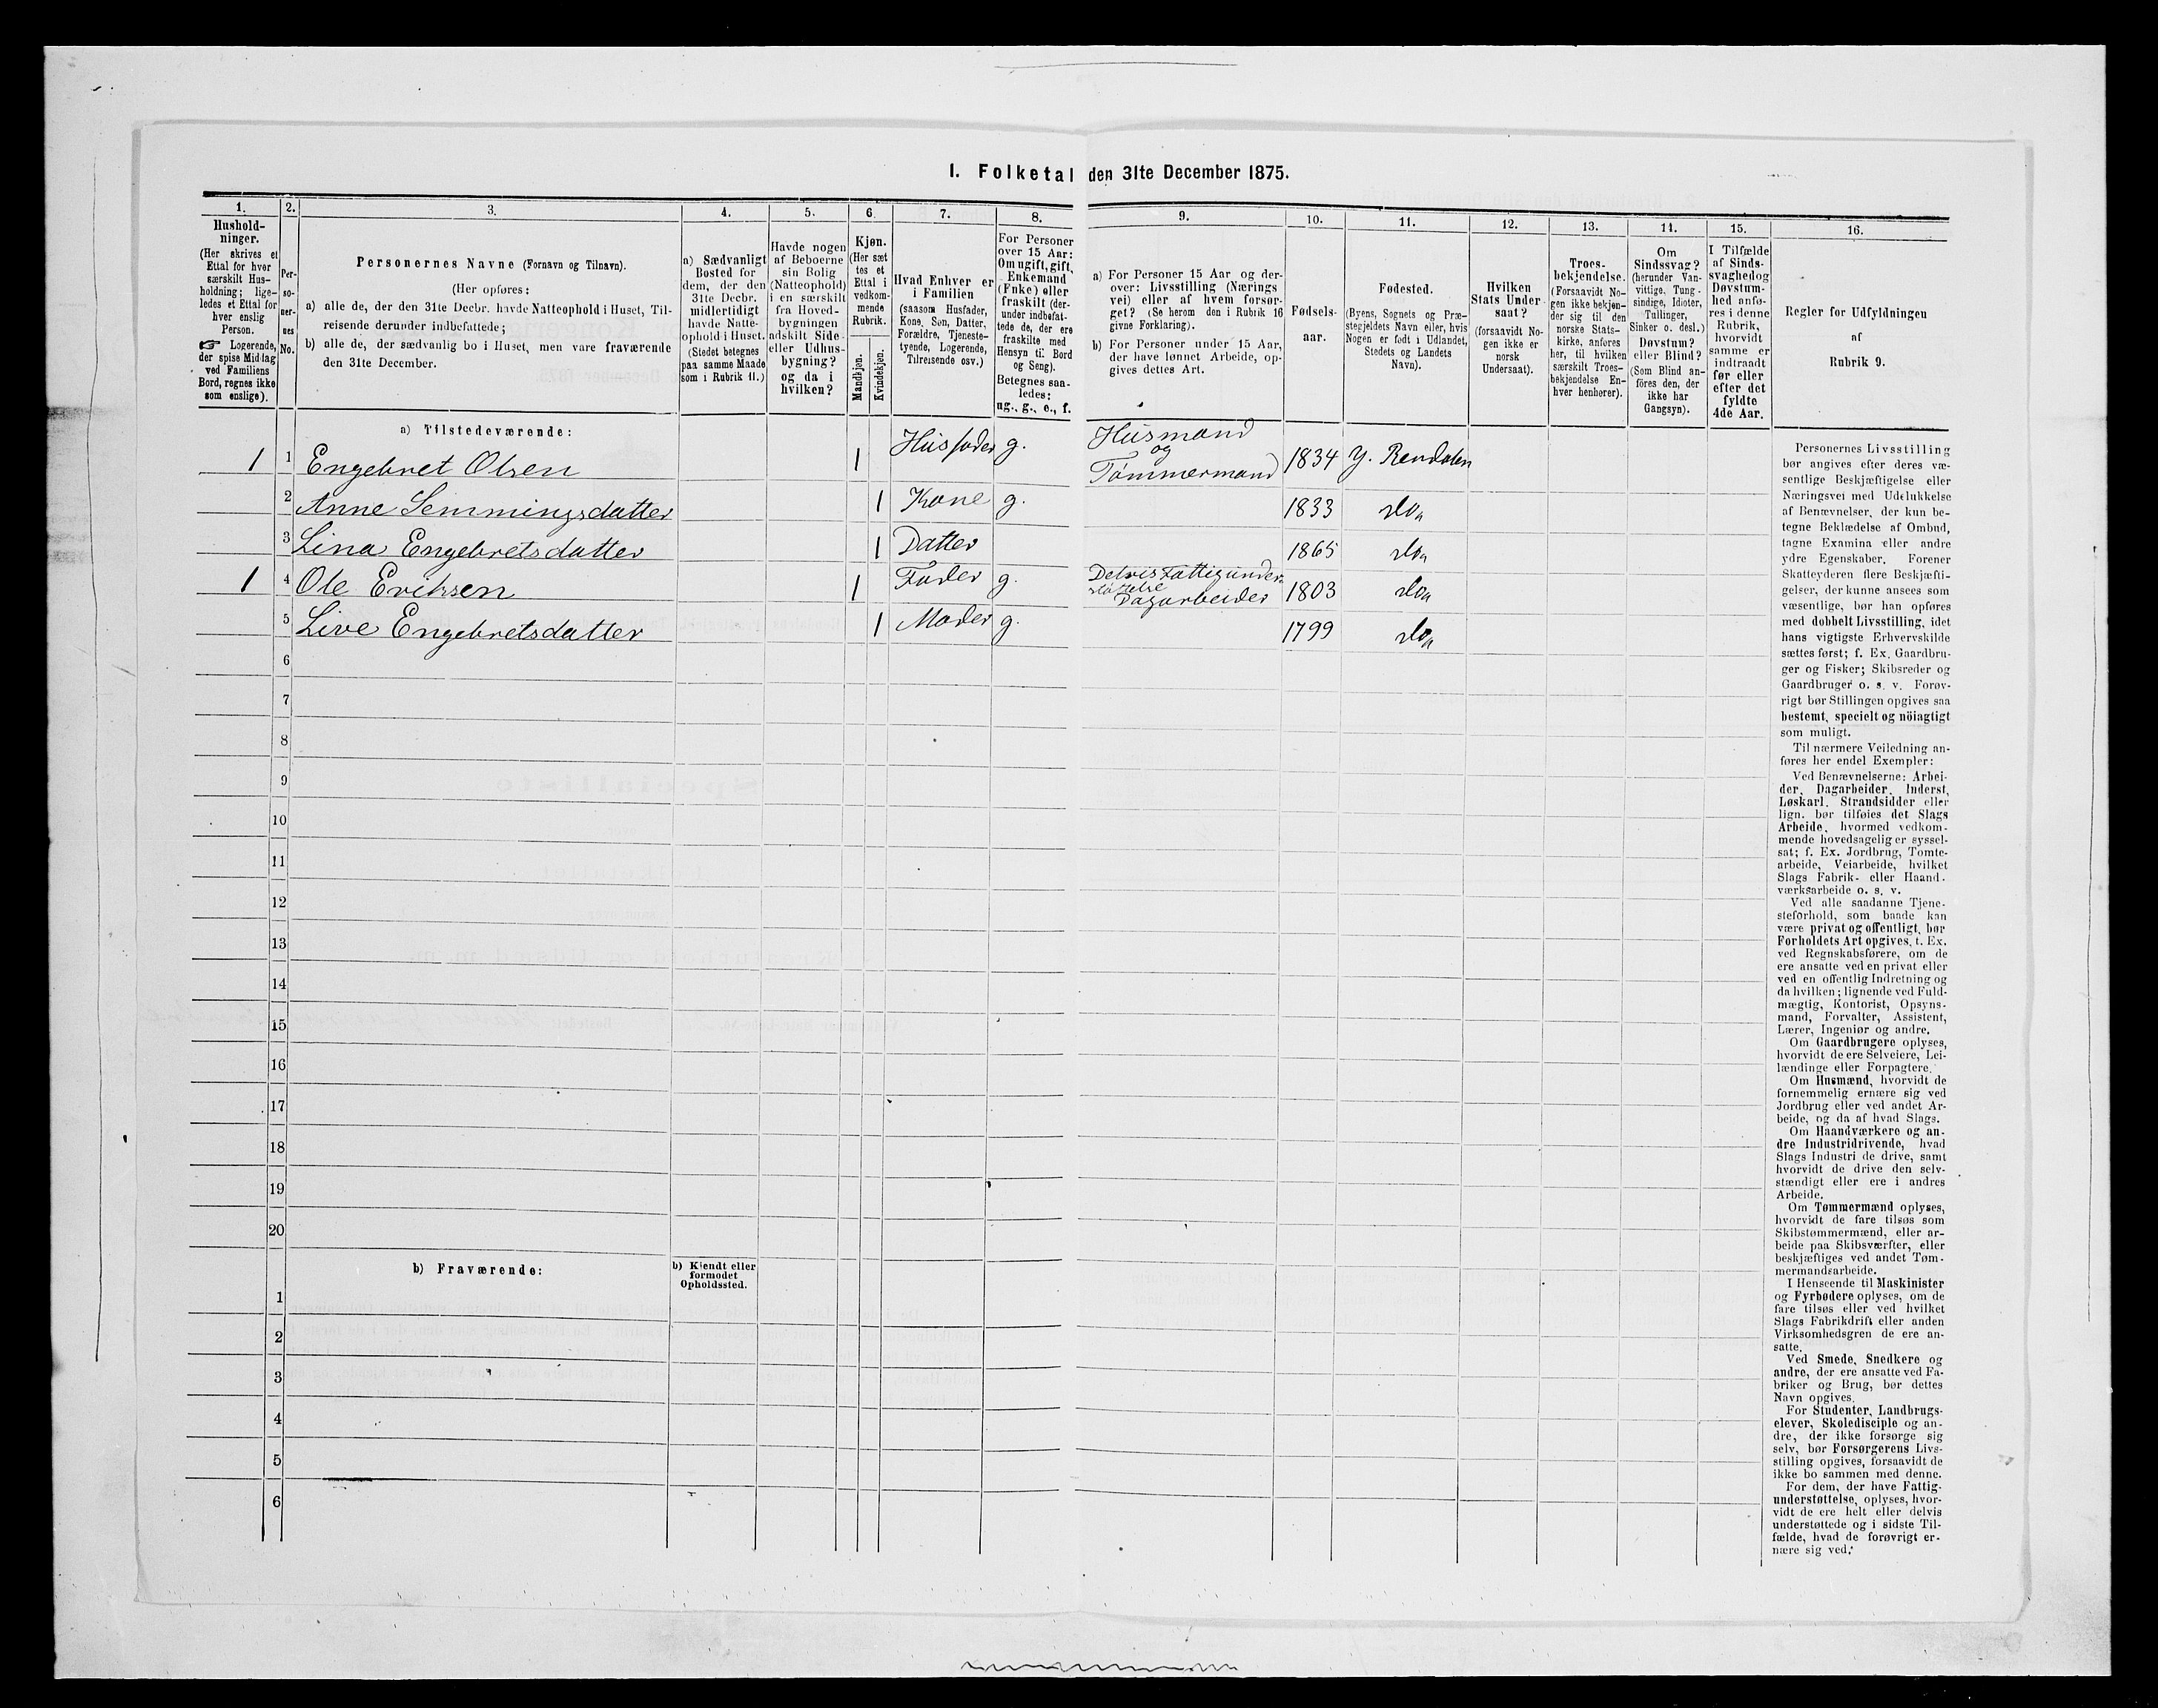 I. Folketal den 31te December 1875.
1. 2. 3. 4. 5. 6. 7. 8. 9. 10. 11. 12. 13. 14. 15. 16.
Hushold-
ninger.
(Her skrives et
Ettal for hver
særskilt Hus-
holdning; lige-
ledes et Ettal for
hver enslig
Person.
☞ Logerende,
der spise Middag
ved Familiens
Bord, regnes ikke
som enslige).
Per-
so-
ner-
nes
No.
Personernes Navne (Fornavn og Tilnavn).
(Her opføres:
a) alle de, der den 31te Decbr. havde Natteophold i Huset, Til-
reisende derunder indbefattede;
b) alle de, der sædvanlig bo i Huset, men vare fraværende
den 31te December.
a) Sædvanligt
Bosted for
dem, der den
31te Decbr.
midlertidigt
havde Natte-
ophold i Huset.
(Stedet betegnes
paa samme Maade
som i Rubrik 11.)
Havde nogen
af Beboerne
sin Bolig
(Natteophold)
i en særskilt
fra Hoved-
bygningen
adskilt Side-
eller Udhus-
bygning?
og da i
hvilken?
Kjøn.
(Her sæt
tes et
Ettal i
vedkom-
mende
Rubrik.
Mandkjøn.
Kvindekjøn.
Hvad Enhver er
i Familien
(saasom Husfader,
Kone, Søn, Datter,
Forældre, Tjeneste-
tyende, Logerende,
Tilreisende osv.)
For Personer
over 15 Aar:
Om ugift, gift,
Enkemand
(Enke) eller
fraskilt (der-
under indbefat-
tede de, der ere
fraskilte med
Hensyn til Bord
og Seng).
Betegnes saa-
ledes:
ug., g., e., f.
a) For Personer 15 Aar og der-
over: Livsstilling (Nærings
vei) eller af hvem forsør-
get? (Se herom den i Rubrik 16
givne Forklaring).
b) For Personer under 15 Aar,
der have lønnet Arbeide, op-
gives dettes Art.
Fødsels-
aar.
Fødested.
(Byens, Sognets og Præ-
stegjeldets Navn eller, hvis
Nogen er født i Udlandet,
Stedets og Landets
Navn).
Hvilken
Stats Under-
saat?
(forsaavidt No-
gen ikke er
norsk
Undersaat).
Troes-
bekjendelse.
(Forsaavidt No-
gen ikke bekjen-
der sig til den
norske Stats-
kirke, anføres
her, til hvilken
særskilt Troes-
bekjendelse En-
hver henhører).
Om
Sindssvag?
(herunder Van-
vittige, Tung-
sindige, Idioter,
Tullinger,
Sinker o. desl.)
Døvstum?
eller Blind?
(Som Blind an-
föres den, der
ikke har
Gangsyn).
I Tilfælde
af Sinds-
svaghed og
Døvstum-
hed anfø-
res i denne
Rubrik,
hvorvidt
samme er
indtraadt
før eller
efter det
fyldte
4de Aar.
Regler for Udfyldningen
af
Rubrik 9.
a) Tilstedeværende:
1 1 Engebret Olsen 1 Husfader g. Husmand og Tømmermand 1834 Y. Rendalen
2 Anne Semmingsdatter 1 Kone g. 1833 do
3 Lina Engebretsdatter 1 Datter 1865 do
1 4 Ole Eriksen 1 Fader g. Delvis Fattigunderstøttelse Dagarbeider 1803 do
5 Live Engebretsdatter 1 Moder g. 1799 do
6
7
8
9
10
11
12
13
14
15
16
17
18
19
20
b) Fraværende:
b) Kjendt eller
formodet
Opholdssted.
1
2
3
4
5
6
Personernes Livsstilling
bør angives efter deres væ-
sentlige Beskjæftigelse eller
Næringsvei med Udelukkelse
af Benævnelser, der kun be-
tegne Beklædelse af Ombud,
tagne Examina eller andre
ydre Egenskaber. Forener
Skatteyderen flere Beskjæfti-
gelser, der kunne ansees som
væsentlige, bør han opføres
med dobbelt Livsstilling, idet
hans vigtigste Erhvervskilde
sættes først; f. Ex. Gaardbru-
ger og Fisker; Skibsreder og
Gaardbruger o. s. v. Forøv-
rigt bør Stillingen opgives saa
bestemt, specielt og nöiagtigt
som muligt.
Til nærmere Veiledning an-
føres her endel Exempler:
Ved Benævnelserne: Arbei-
der, Dagarbeider, Inderst,
Løskarl, Strandsidder eller
lign. bør tilføies det Slags
Arbeide, hvormed vedkom-
mende hovedsagelig er syssel-
sat; f. Ex. Jordbrug, Tomte-
arbeide, Veiarbeide, hvilket
Slags Fabrik- eller Haand-
værksarbeide o. s. v.
Ved alle saadanne Tjene-
steforhold, som baade kan
være privat og offentligt, bør
Forholdets Art opgives, t. Ex.
ved Regnskabsførere, om de
ere ansatte ved en privat eller
ved en offentlig Indretning og
da hvilken; lignende ved Fuld-
mægtig, Kontorist, Opsyns-
mand, Forvalter, Assistent,
Lærer, Ingeniør og andre.
Om Gaardbrugere oplyses,
hvorvidt de ere Selveiere, Lei-
lændinge eller Forpagtere.
Om Husmænd, hvorvidt de
fornemmelig ernære sig ved
Jordbrug eller ved andet Ar-
beide, og da af hvad Slags.
Om Haandværkere og an-
dre Industridrivende, hvad
Slags Industri de drive, samt
hvorvidt de drive den selv-
stændigt eller ere i andres
Arbeide.
Om Tømmermænd oplyses,
hvorvidt de fare tilsøs som
Skibstømmermænd, eller ar-
beide paa Skibsværfter, eller
beskjæftiges ved andet Tøm-
mermandsarbeide.
I Henseende til Maskinister
og Fyrbødere oplyses, om de
fare tilsøs eller ved hvilket
Slags Fabrikdrift eller anden
Virksomhedsgren de ere an-
satte.
Ved Smede, Snedkere og
andre, der ere ansatte ved Fa-
briker og Brug, bør dettes
Navn opgives.
For Studenter, Landbrugs-
elever, Skoledisciple og an-
dre, der ikke forsørge sig
selv, bør Forsørgerens Livs-
stilling opgives, forsaavidt de
ikke bo sammen med denne.
For dem, der have Fattig-
understøttelse, oplyses, hvor-
vidt de ere helt eller delvis
understøttede og i sidste Til-
fælde, hvad de forøvrigt er-
nære sig ved.